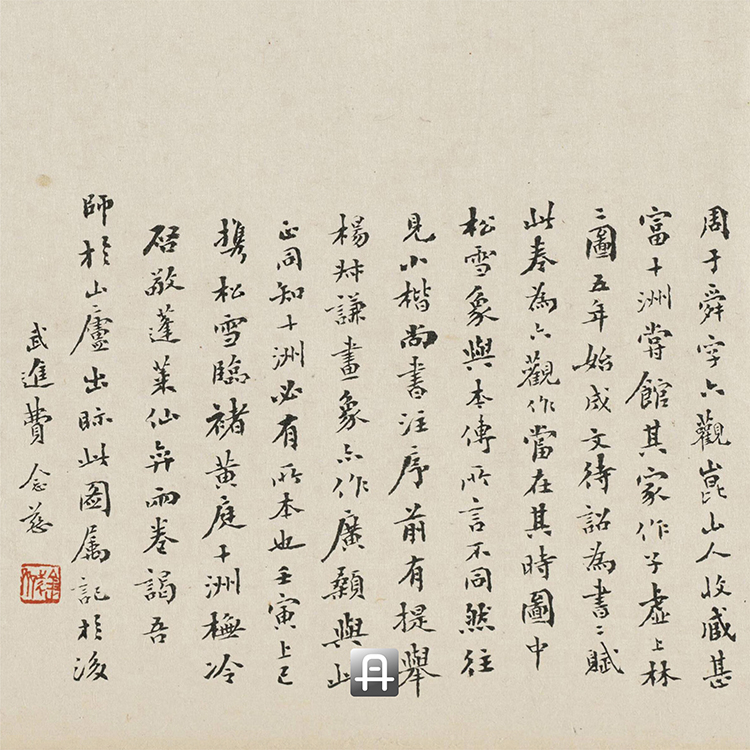 周于舜字六觀崑山人收藏甚
富十洲嘗館其家作子虛上林
二圖五年始成文待詔為書二賦
此奉為六觀作當在其時圖中
松雪象與本傳所言不同然往
見小楷尚書注序前有提舉
楊叔謙畫象亦作廣顙與此
正同知十洲必有所本也壬寅上巳
攜松雪臨褚黃庭十洲橅冷
启敬蓬萊仙弈兩卷謁吾
師於山廬出眎此圖屬記於後
武進費念慈